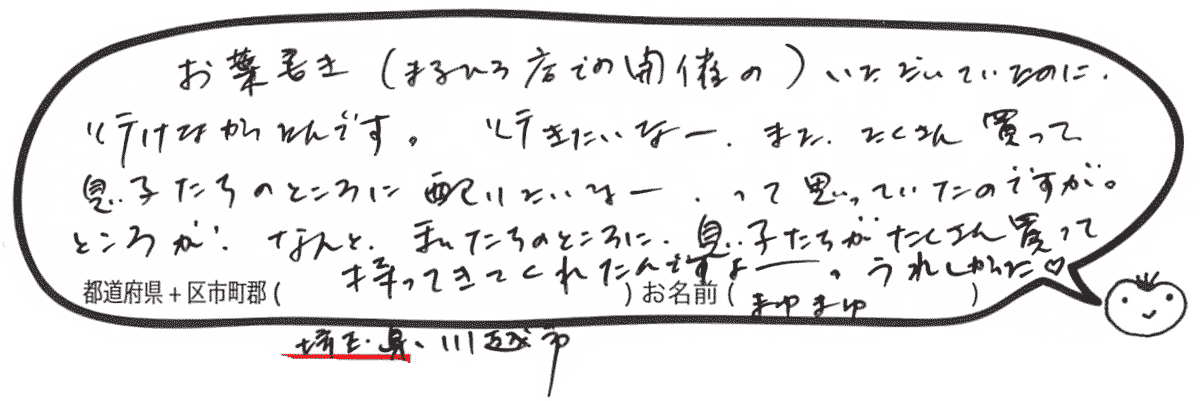 お葉書き(まるひろ店での開催の)いただいていたのに、
行けなかったんです。行きたいなー、また、たくさん買って
息子たちのところに配りたいなー、って思っていたのですが。
ところが、なんと、私たちのところに、息子たちがたくさん買って
持ってきてくれたんですよー。うれしかった♡
都道府県+区市町郡( ) お名前(まゆまゆ)
埼玉県、川越市